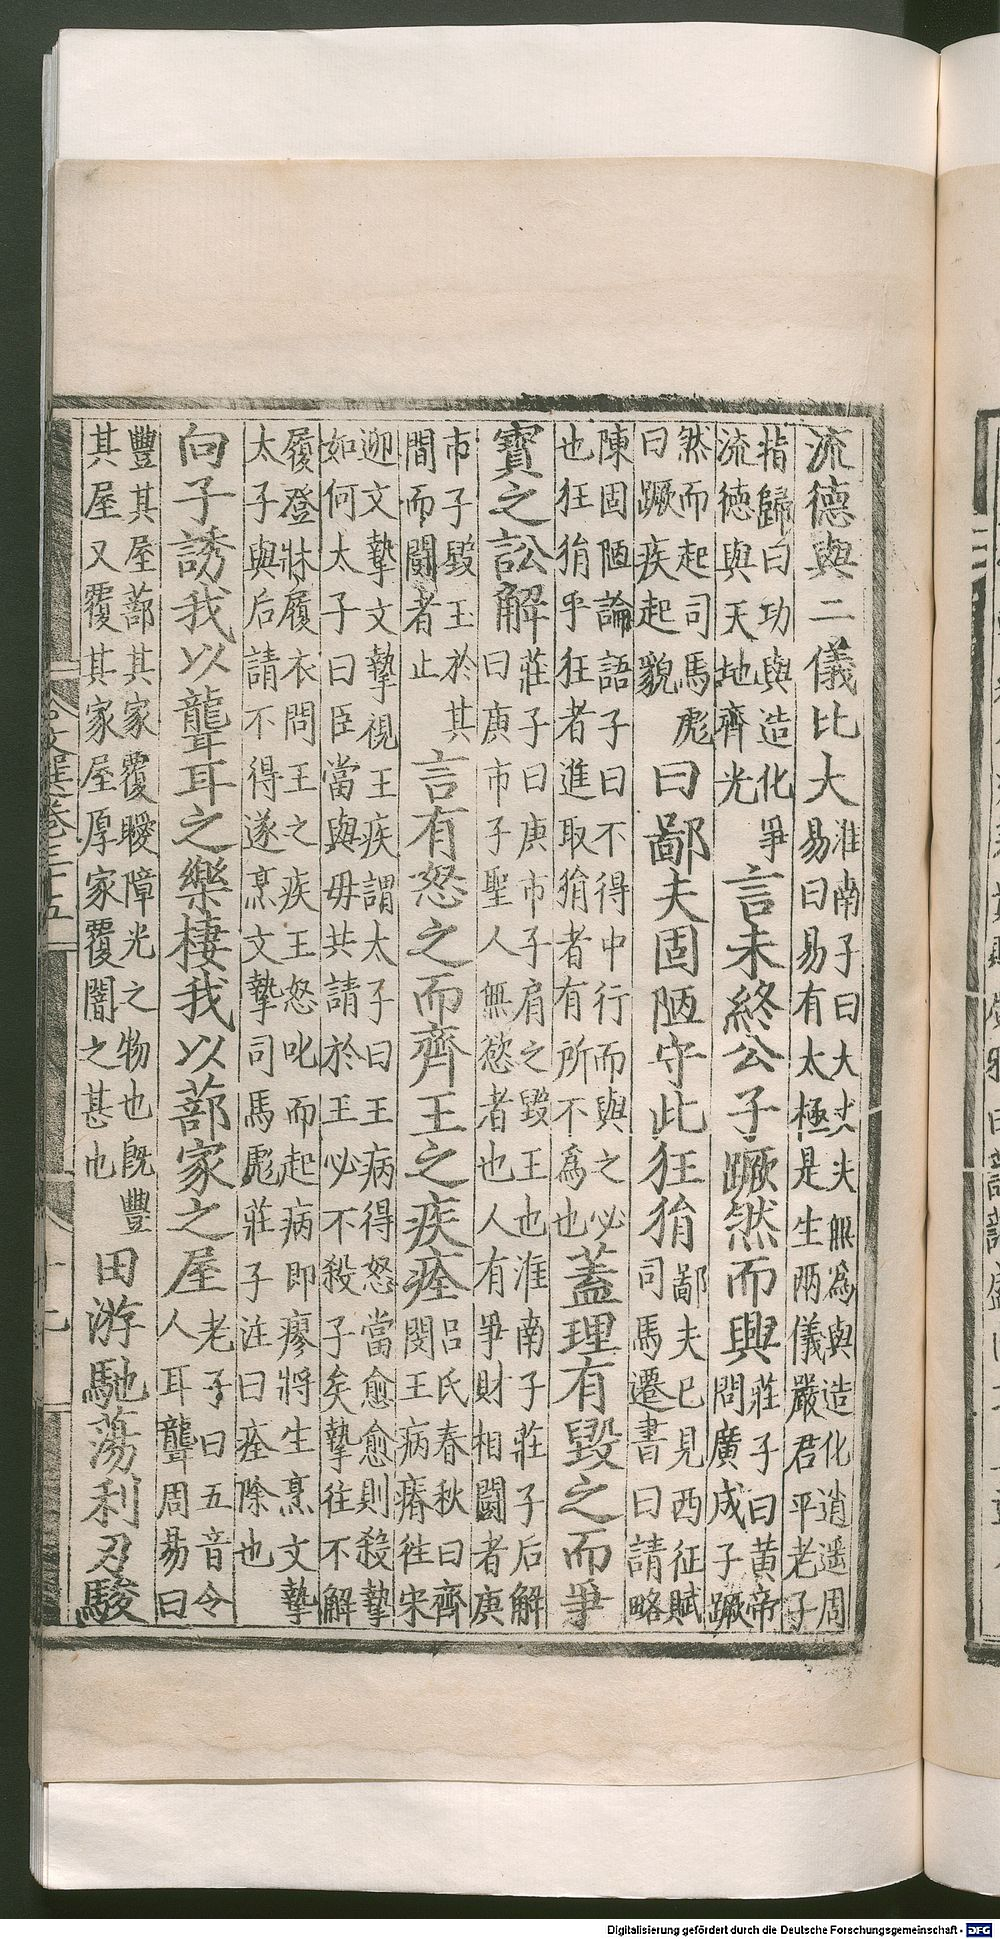 流德與二儀比大淮南子曰大丈夫無為與造化逍遥周
易曰易有太極是生兩儀嚴君平老子
指歸曰功與造化爭
流德與天地齊光言未終公子蹶然而興莊子曰黃帝
問廣成子蹶
然而起司馬彪
曰蹶疾起貌曰鄙夫固陋守此狂狷鄙夫已見西征賦
司馬遷書曰請略
陳固陋論語子曰不得中行而與之必
也狂狷乎狂者進取狷者有所不為也蓋理有毀之而爭
寶之訟解莊子曰庚市子肩之毀王也淮南子莊子后解
曰庚市子聖人無慾者也人有爭財相鬬者庚
市子毀王於其
間而鬬者止言有怒之而齊王之疾痊呂氏春秋曰齊
閔王病瘠往宋
迎文摯文摯視王疾謂太子曰王病得怒當愈愈則殺摯
如何太子曰臣當與母共請於王必不殺子矣摯往不解
履登牀履衣問王之疾王怒叱而起病即瘳將生烹文摯
太子與后請不得遂烹文摯司馬彪莊子注曰痊除也
向子誘我以聾耳之樂棲我以蔀家之屋老子曰五音令
人耳聾周易曰
豐其屋蔀其家覆曖障光之物也既豐
其屋又覆其家屋厚家覆闇之甚也田游馳蕩利刃駿
Digitalisierung gefördert durch die Deutsche Forschungsgemeinschaft - DFG